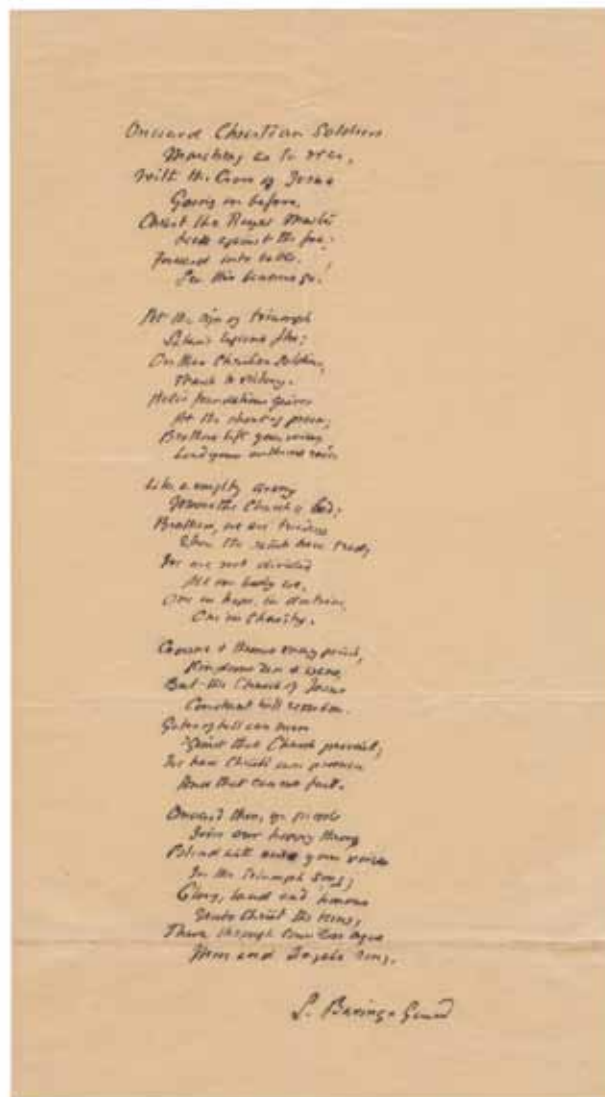 Onward Christian Soldiers
Marching as to war,
With the Cross of Jesus
Going on before,
Christ the Royal Master
leads against the foe;
Forward into battle,
See His banners go!
At the sign of triumph
Satan's legions flee;
On then Christian Soldiers,
On to victory.
Hell's foundations quiver
At the shout of praise;
Brothers lift your voices
Loud your anthems raise
Like a mighty army
Moves the Church of God;
Brothers, we are treading
Where the saints have trod;
We are not divided
All one body we,
One in hope, in doctrine,
One in Charity.
Crowns & thrones may perish,
Kingdoms rise & wane,
But the Church of Jesus
Constant will remain.
Gates of hell can never
'gainst that Church prevail;
We have Christ's own promise
And that cannot fail.
Onward then, ye people
Join our happy throng
Blend with your voices
In the Triumph Song;
Glory, laud and honour
Unto Christ the King,
This through countless ages
Men and Angels sing.
S. Baring-Gould